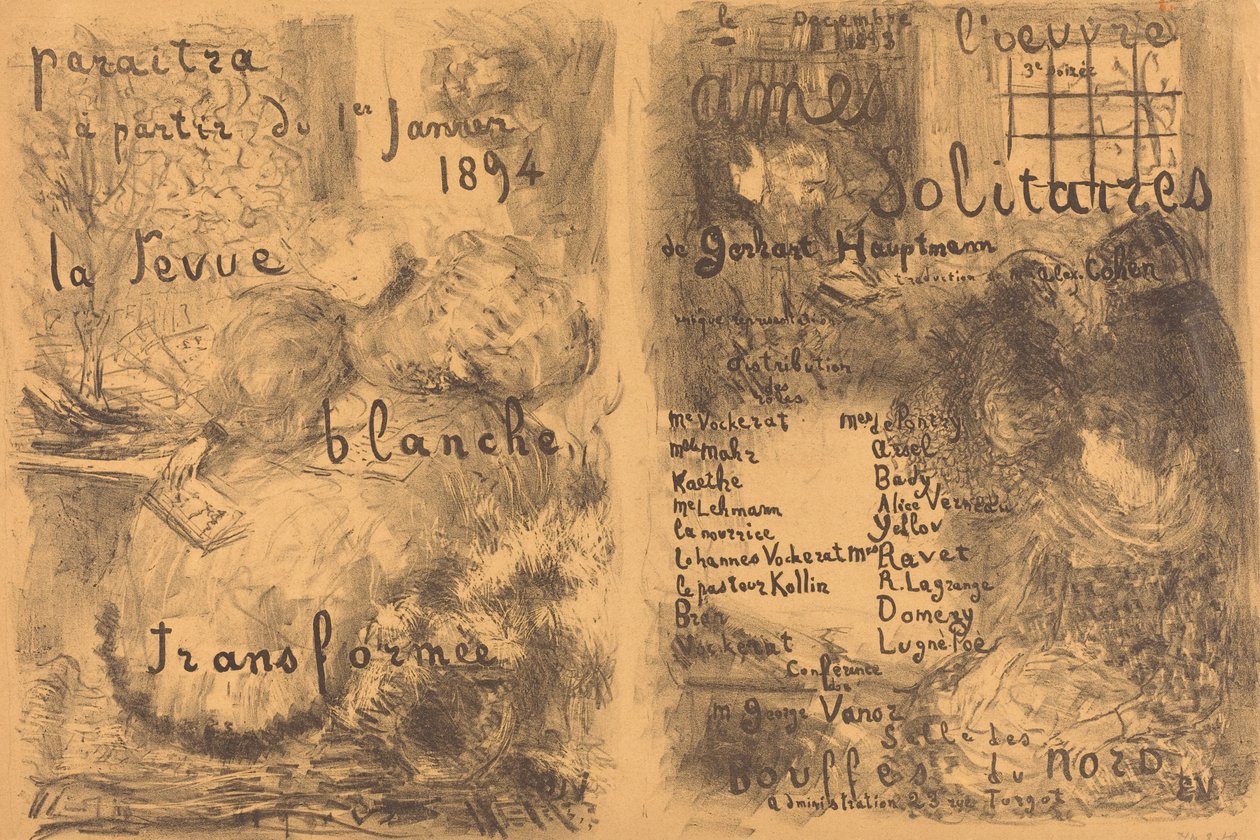 paraitra
à partir du 1er Janvier
1894
la revue
blanche
transformée
le Decembre
1893
l'oeuvre
3e soirée
ames
Solitaires
de Gerhart Hauptmann
traduction de Mr Alex. Cohen
unique représentation
distribution
des
rôles
Me Vockerat Mmes de Pontry
Melle Mahr Arsel
Kaethe Bady
Me Lehmann Alice Verneau
la nourrice Yellov
Johannes Vockerat Mrs Ravet
le pasteur Kollin R. Lagrange
Bran Domeny
Vockerat Lugné Poe
Conférence
de
M George Vanor
Salle des
Bouffes du Nord
administration 23 rue Turgot
EV